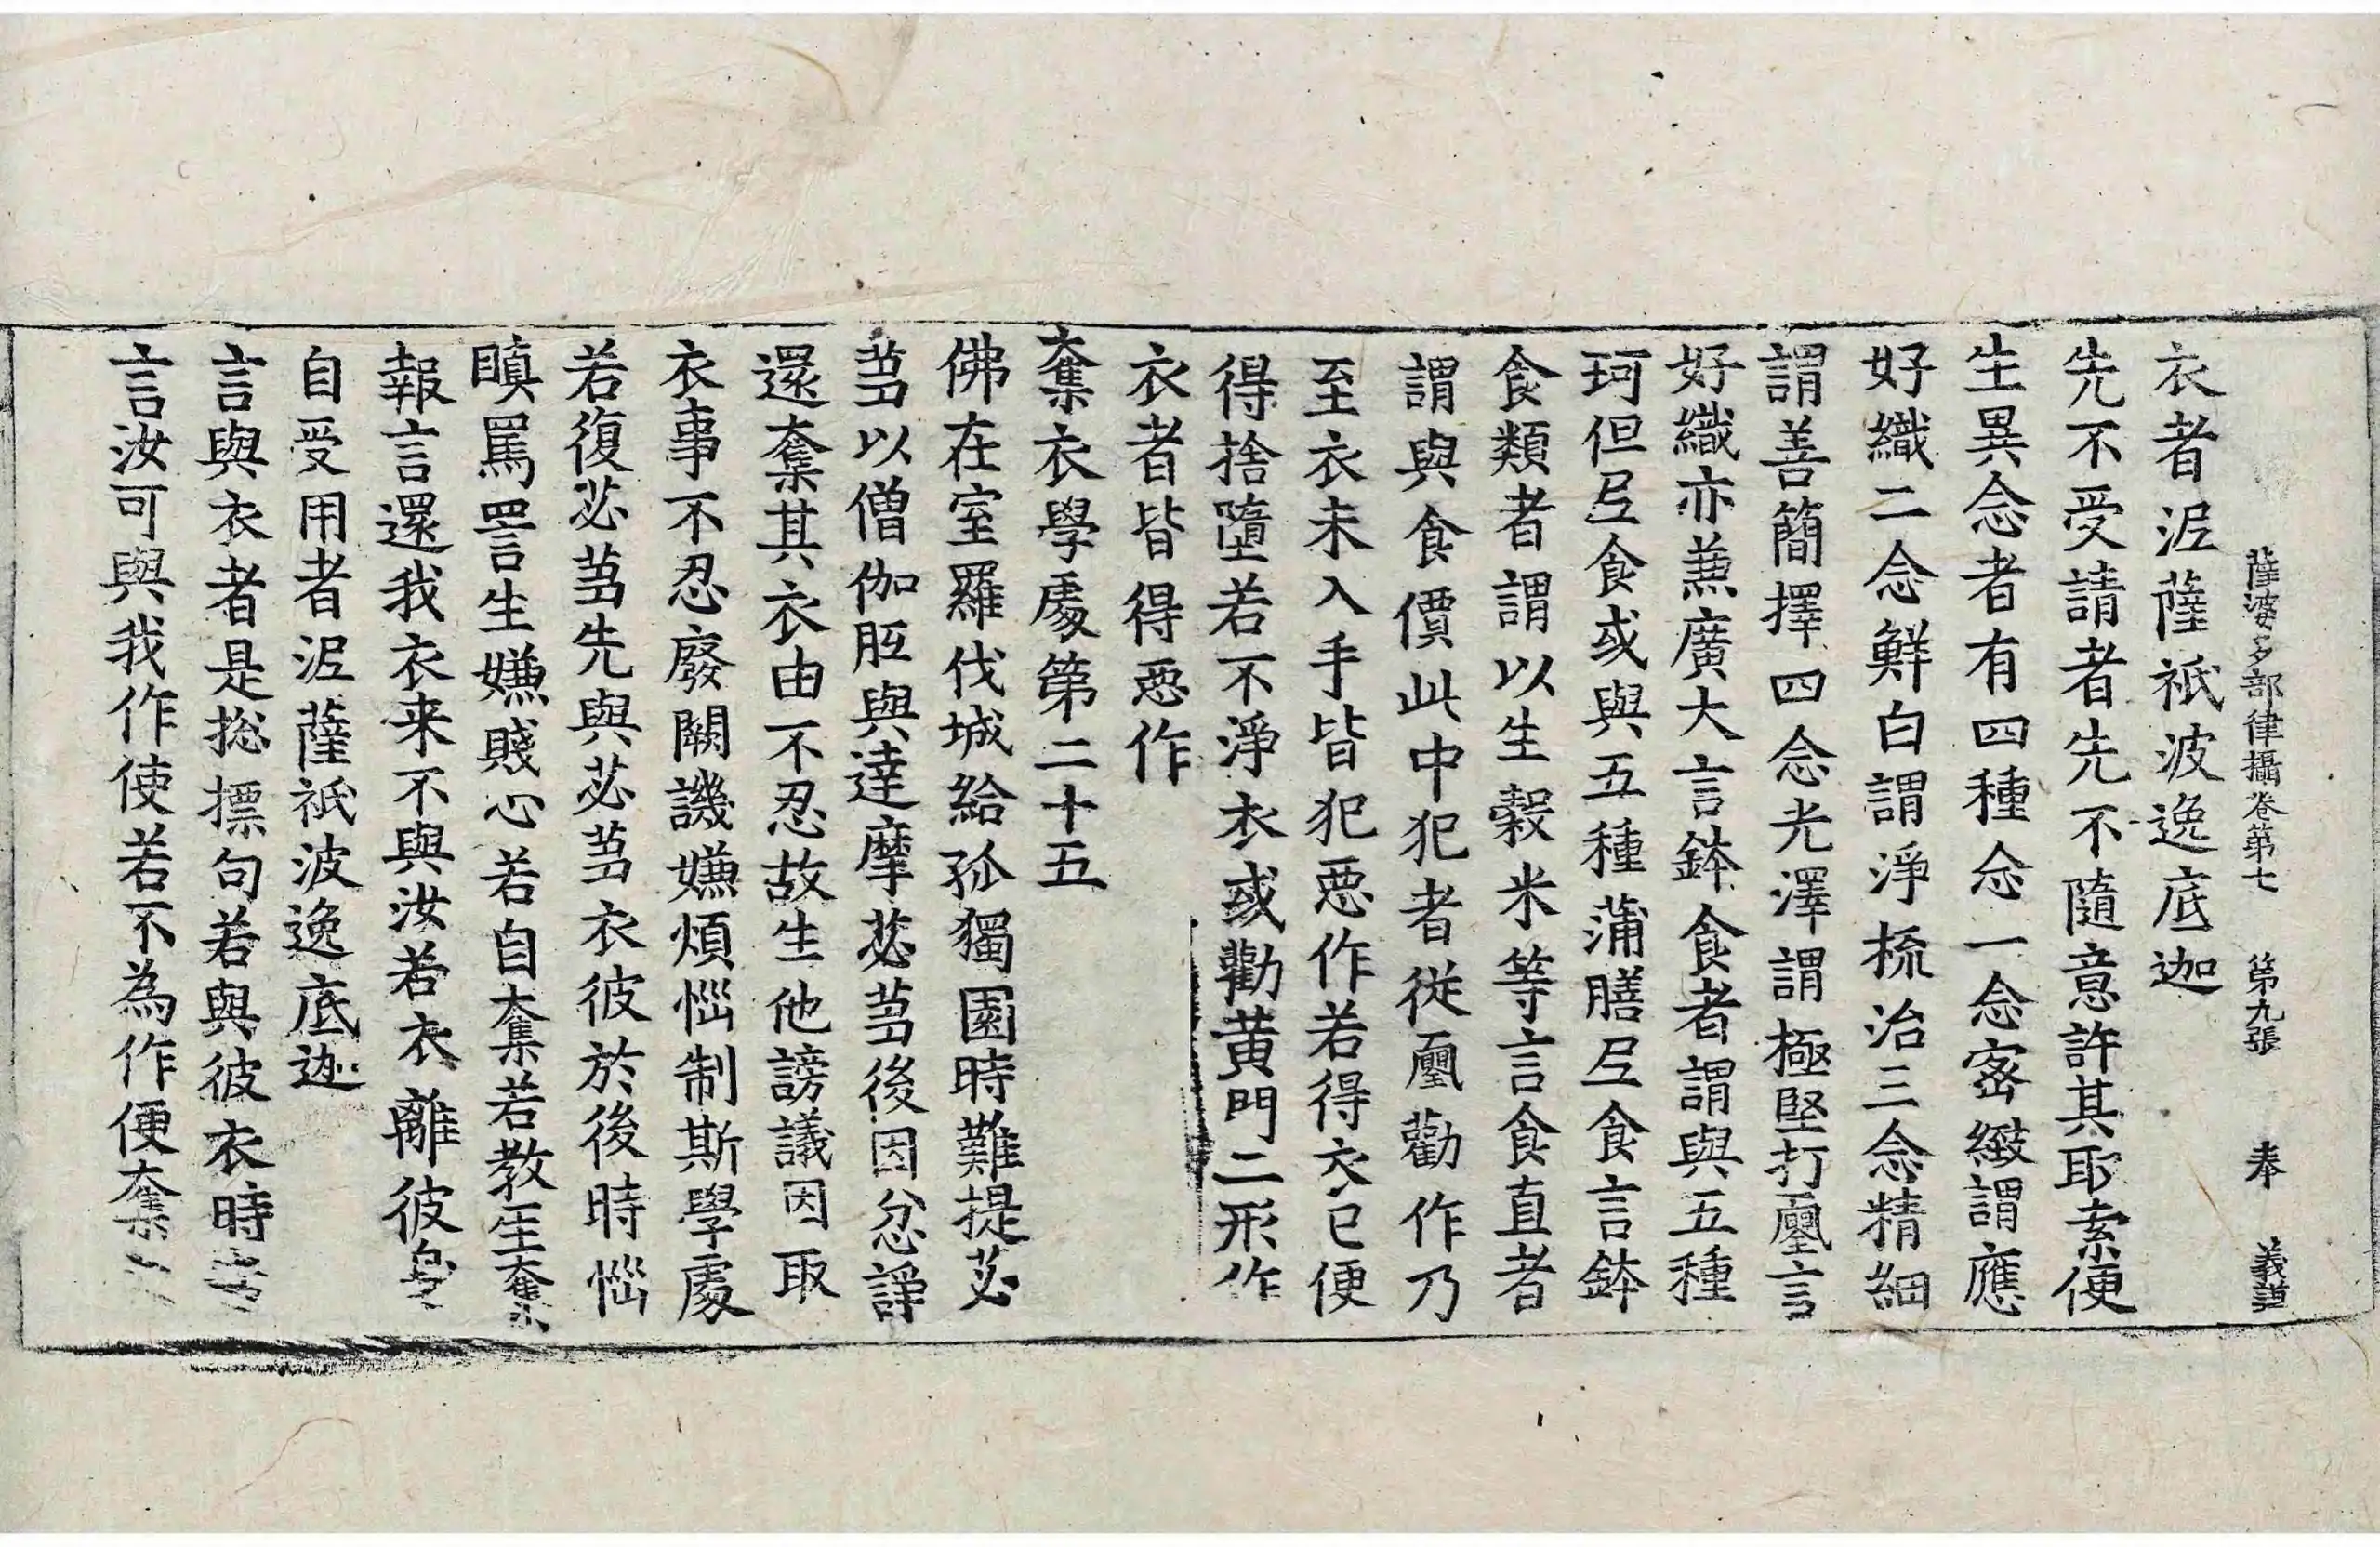 薩婆多部律攝卷第七 第九張 奉 義
衣者泥薩祇波逸底迦
先不受請者先不隨意許其取索便
生異念者有四種念一念密緻謂應
好織二念鮮白謂淨梳治三念精細
謂善簡擇四念光澤謂極堅打𠃵言
好織亦兼廣大言鉢食者謂與五種
珂但尼食或與五種蒲膳尼食言鉢
食類者謂以生穀米等言食直者
謂與食價此中犯者從𠃵勸作乃
至衣未入手皆犯惡作若得衣已便
得捨墮若不淨衣或勸黃門二形作
衣者皆得惡作
奪衣學處第二十五
佛在室羅伐城給孤獨園時難提苾
芻以僧伽胝與達摩苾芻後因忿諍
還奪其衣由不忍故生他謗議因取
衣事不忍廢闕譏嫌煩惱制斯學處
若復苾芻先與苾芻衣彼於後時惱
瞋罵詈生嫌賤心若自奪若教生奪
報言還我衣来不與汝若衣離彼身
自受用者泥薩祇波逸底迦
言與衣者是捴摽句若與彼衣時
言汝可與我作使若不為作便奪